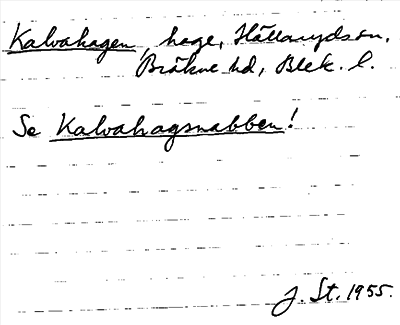 Kalvahagen, hage, Hällaryds sn,
Bräkne hd, Blek. l.
Se Kalvahagsnabben!
J. St. 1955.